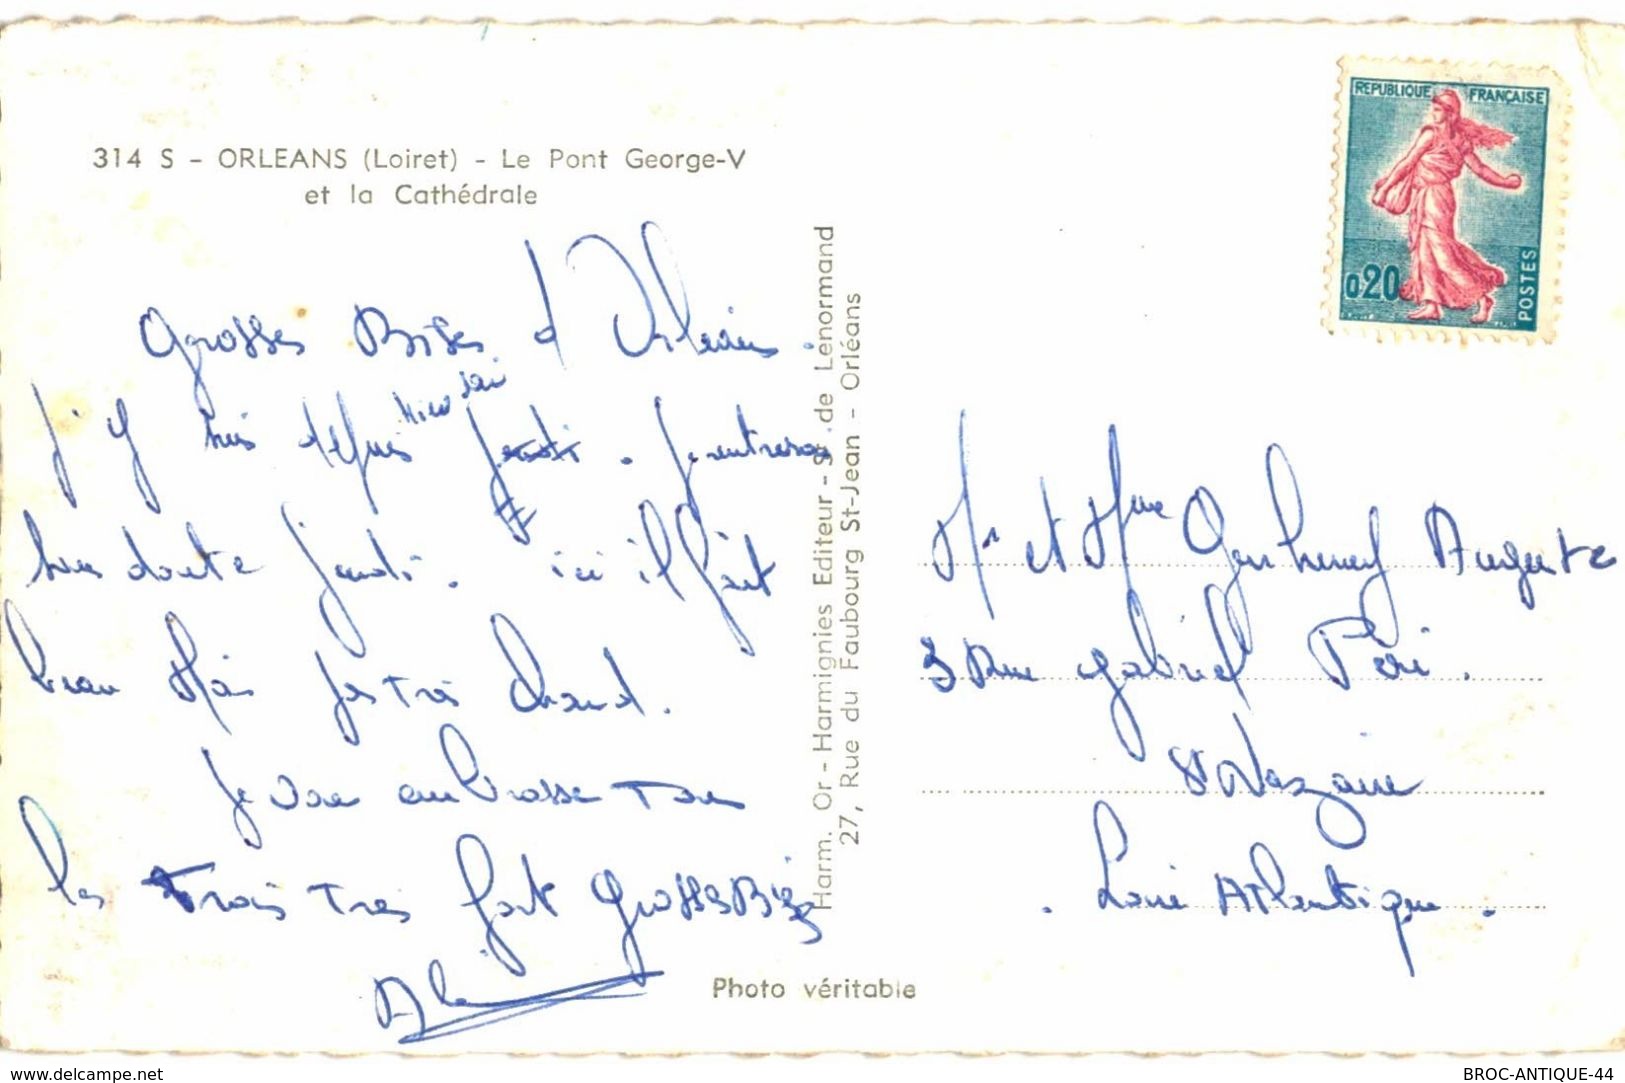 314 S - ORLEANS (Loiret) - Le Pont George-V
et la Cathédrale
Grosses Bises d'Orléans.
J'y suis depuis
sans doute jeudi. ici il fait
beau Mais pas très chaud.
Je vous embrasse Tous
les Trois Très fort Grosses Bises
Harm. Or - Harmignies Editeur - S. de Lenormand
27, Rue du Faubourg St-Jean - Orléans
Photo véritable
REPUBLIQUE FRANÇAISE
0,20
POSTES
Mr et Mme Auguste
3 Rue Gabriel Péri.
St Nazaire
Loire Atlantique.
delcampe.net
BROC-ANTIQUE-44